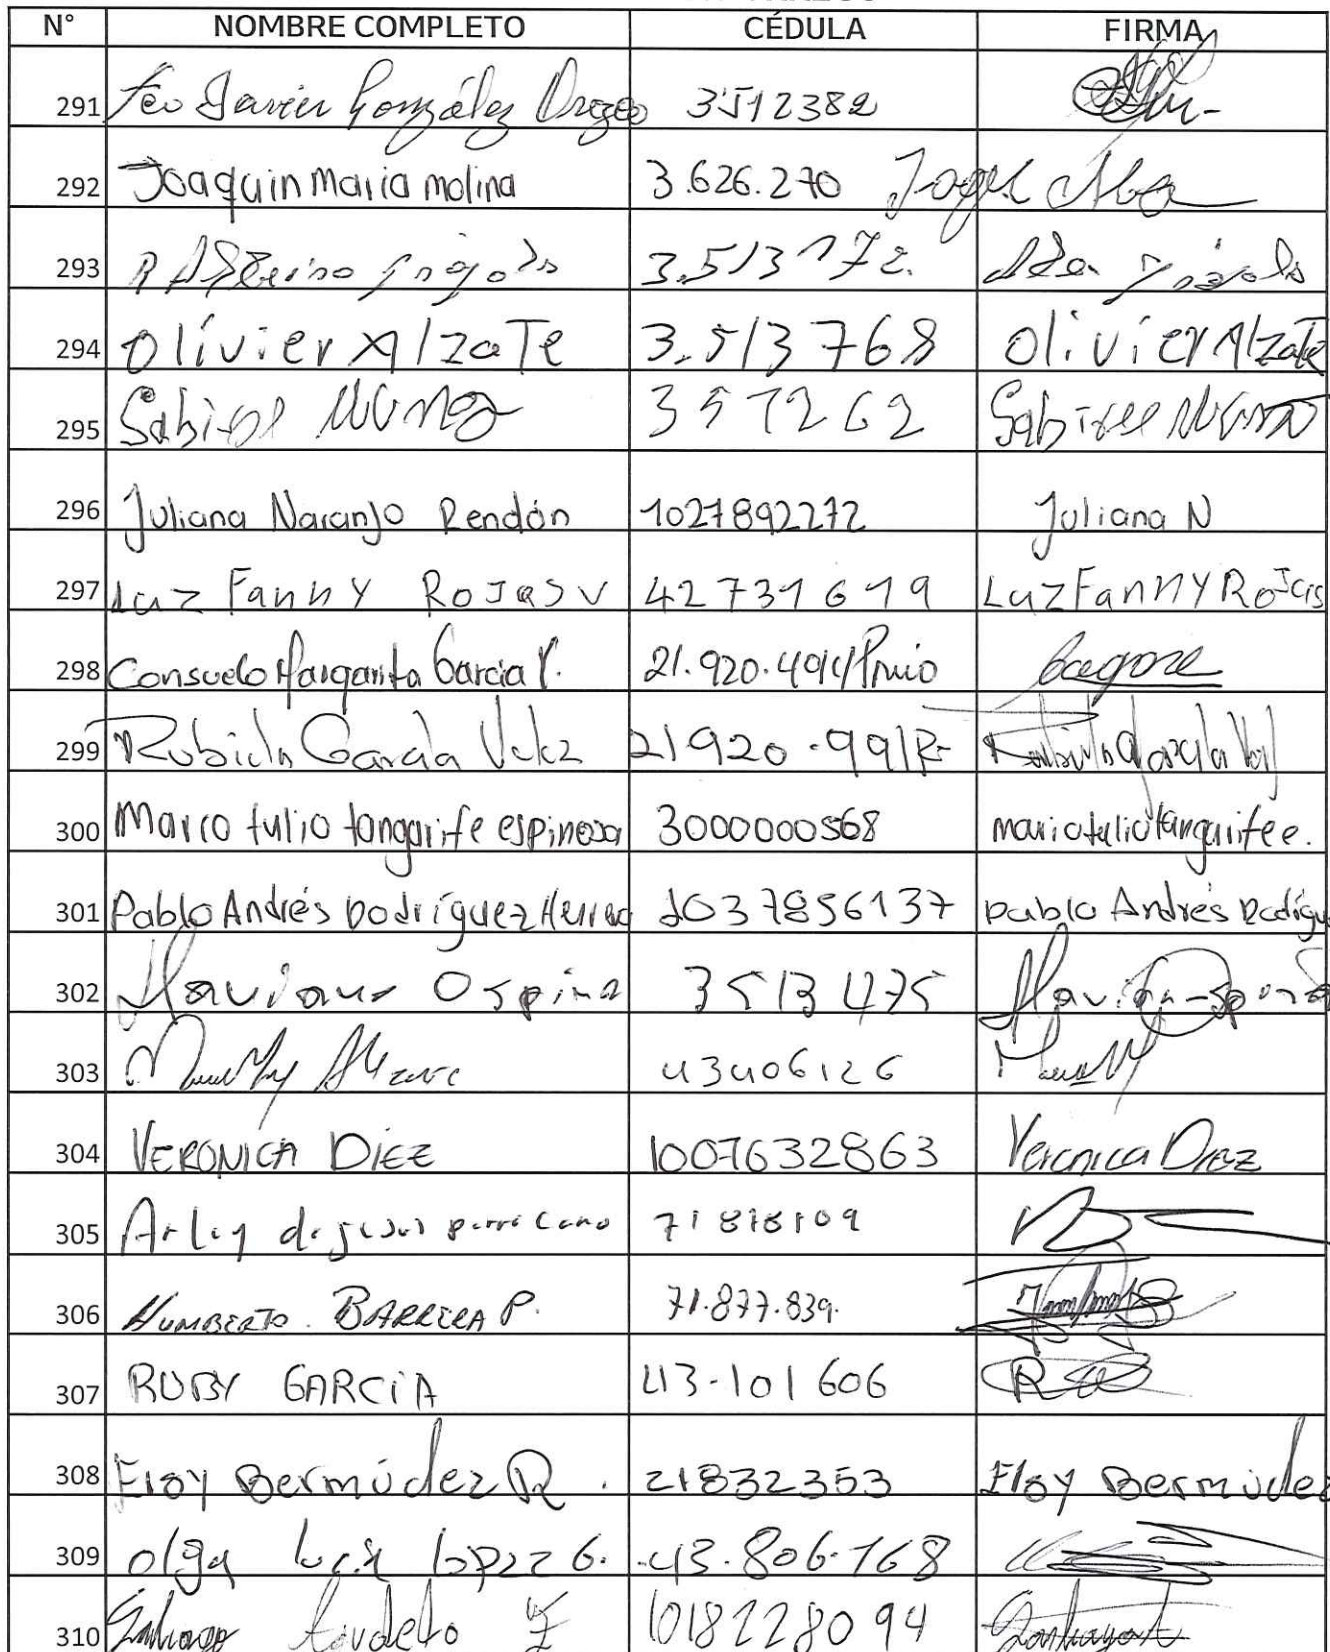 N° NOMBRE COMPLETO CÉDULA FIRMA
291 Fco Javier González Orozco 3512382
292 Joaquin Maria molina 3.626.270
293 3.513172.
294 Olívier AlzaTe 3.513768 Olivier AlzaTe
295 Gabriel Muñoz 3517262 Gabriel Muñoz
296 Juliana Naranjo Rendón 1027892272 Juliana N
297 Luz Fanny Rojas V 42731619 Luz Fanny Rojas
298 Consuelo Margarita Garcia V. 21.920.494
299 Rubiela Garcia Velez 21920.991
300 Marco tulio tangarife espinosa 3000000568 marcotulio tangarife e.
301 Pablo Andrés Rodríguez Herrera 1037856137 pablo Andrés Rodígu
302 Ospina 3513475
303 43406126
304 VERONICA DIEZ 1007632863 Veronica Diez
305 Arley de jesus 71878109
306 HUMBERTO. BARRERA P. 71.877.839.
307 RUBY GARCiA 43-101606
308 Eloy Bermúdez R. 21832353 Eloy Bermúdez
309 olga lucia lopez G. 43.806.168
310 Santiago 1018228094 Santiago